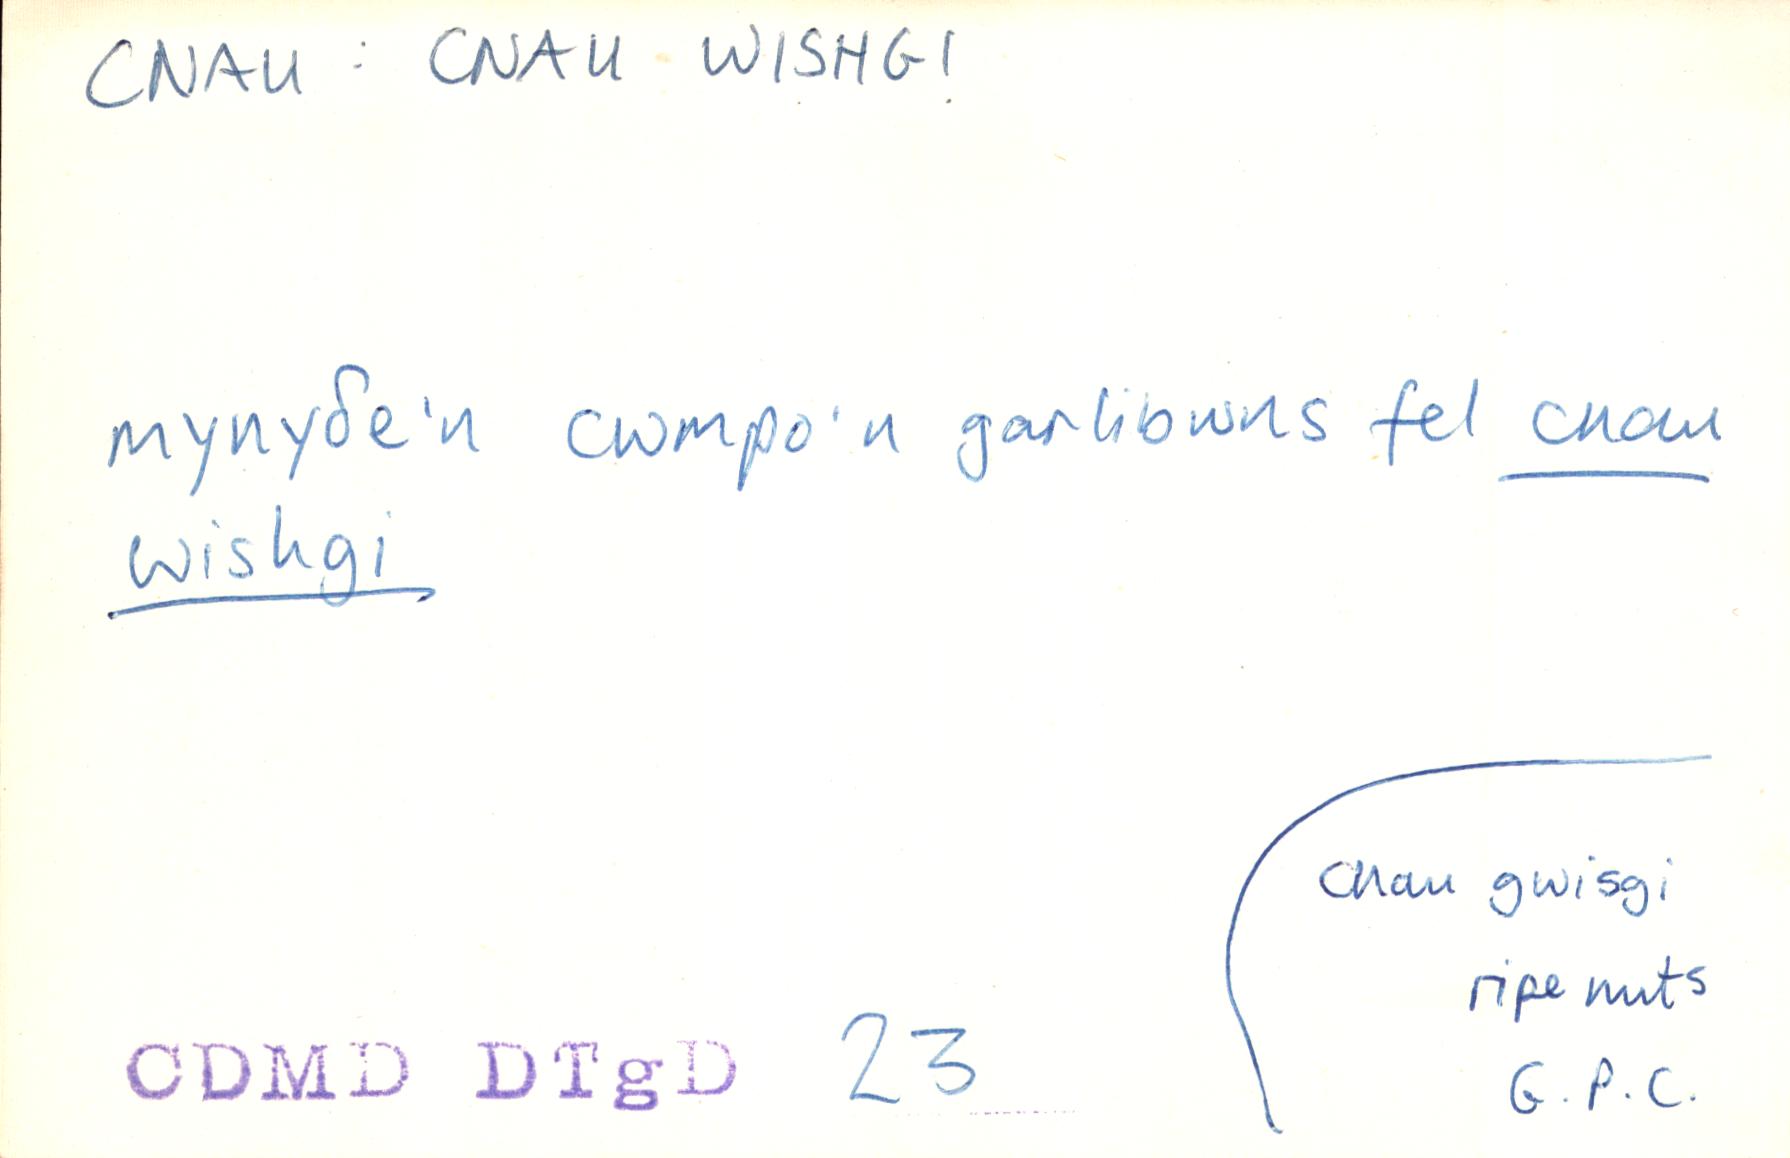 CNAU : CNAU WISHGI
mynyδe'n cwmpo'n garlibwns fel cnau
wishgi
cnau gwisgi
ripe nuts
G.P.C.
CDMD DTgD 23